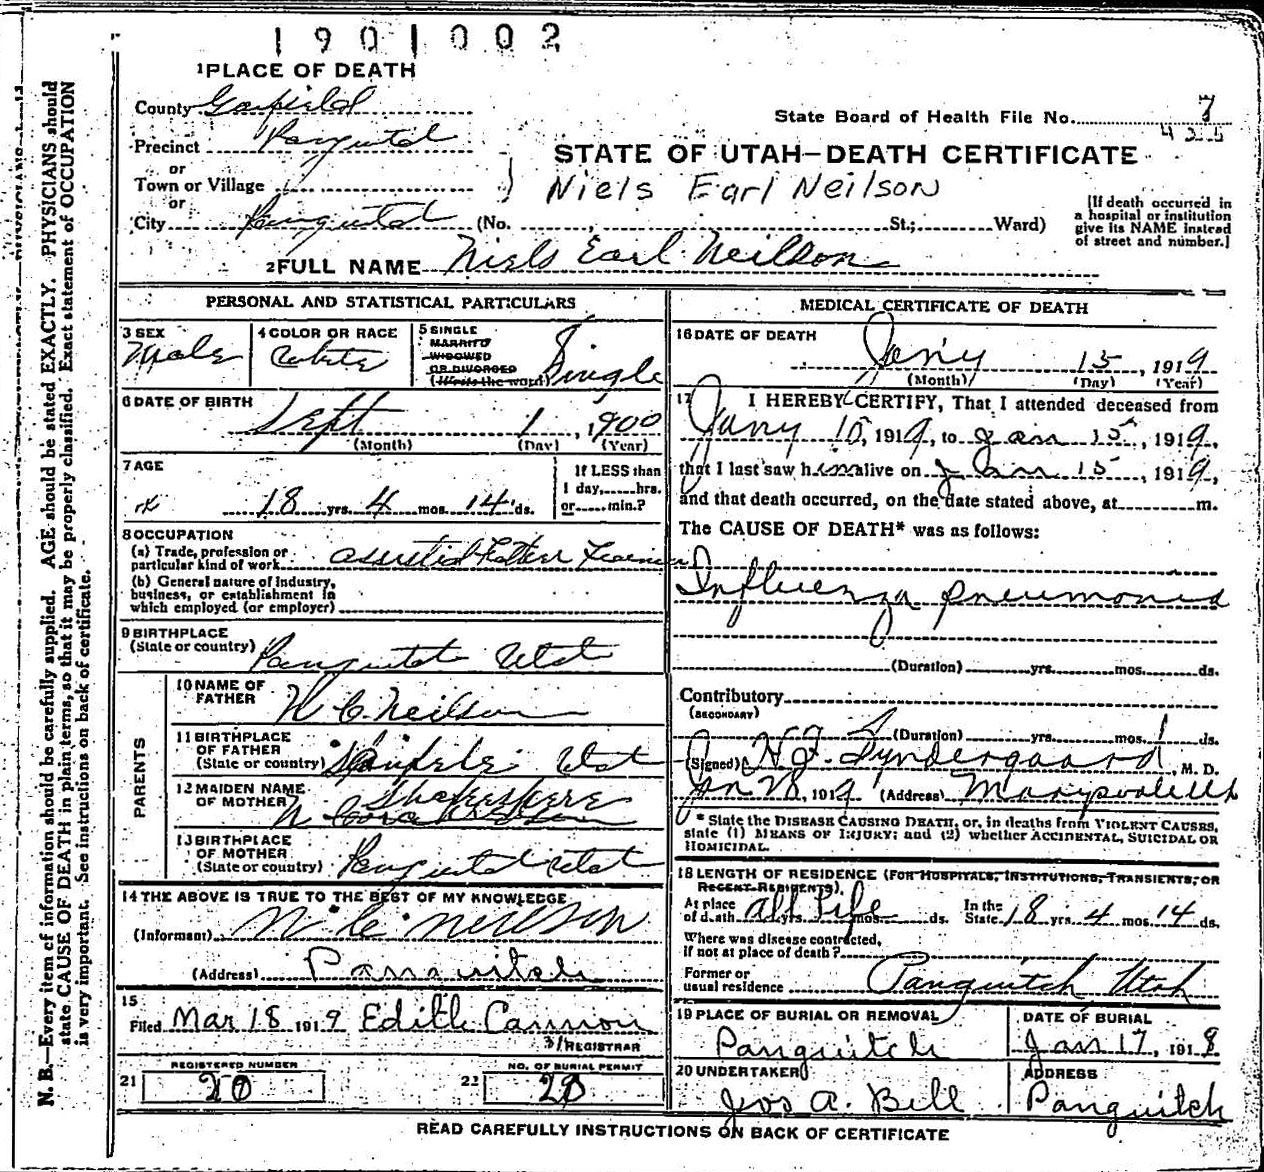 1901002
1 PLACE OF DEATH
County Garfield
State Board of Health File No. 7
425
Precinct Panguitch
or
STATE OF UTAH—DEATH CERTIFICATE
Town or Village
Niels Earl Neilson
or
City Panguitch (No. St.; Ward)
[If death occurred in
a hospital or institution
give its NAME instead
of street and number.]
2 FULL NAME Niels Earl Neilson
PERSONAL AND STATISTICAL PARTICULARS
3 SEX
Male
4 COLOR OR RACE
White
5 SINGLE
MARRIED
WIDOWED
OR DIVORCED
(Write the word)
Single
6 DATE OF BIRTH
Sept 1, 1900
(Month) (Day) (Year)
7 AGE
18 yrs. 4 mos. 14 ds.
If LESS than
1 day, hrs.
or min.?
8 OCCUPATION
(a) Trade, profession or
particular kind of work assisted Father
(b) General nature of industry,
business, or establishment in
which employed (or employer)
9 BIRTHPLACE
(State or country) Panguitch Utah
PARENTS
10 NAME OF
FATHER N C Neilson
11 BIRTHPLACE
OF FATHER
(State or country) Utah
12 MAIDEN NAME
OF MOTHER Shakespeare
13 BIRTHPLACE
OF MOTHER
(State or country) Panguitch Utah
14 THE ABOVE IS TRUE TO THE BEST OF MY KNOWLEDGE
(Informant) Neilson
(Address) Panguitch
15
Filed Mar 18 1919 Edith Cannon
REGISTRAR
REGISTERED NUMBER
21 20
NO. OF BURIAL PERMIT
22 20
MEDICAL CERTIFICATE OF DEATH
16 DATE OF DEATH
Jan'y 15, 1919
(Month) (Day) (Year)
17 I HEREBY CERTIFY, That I attended deceased from
Jany 10, 1919, to Jan 15, 1919,
that I last saw him alive on Jan 15, 1919,
and that death occurred, on the date stated above, at m.
The CAUSE OF DEATH* was as follows:
Influenza pneumonia
(Duration) yrs. mos. ds.
Contributory
(SECONDARY)
(Duration) yrs. mos. ds.
(Signed) Tyndergaard, M. D.
Jan 28, 1919 (Address)
* State the DISEASE CAUSING DEATH, or, in deaths from VIOLENT CAUSES,
state (1) MEANS OF INJURY; and (2) whether ACCIDENTAL, SUICIDAL OR
HOMICIDAL.
18 LENGTH OF RESIDENCE (FOR HOSPITALS, INSTITUTIONS, TRANSIENTS, OR
RECENT RESIDENTS).
At place
of death all Life yrs. mos. ds.
In the
State 18 yrs. 4 mos. 14 ds.
Where was disease contracted,
if not at place of death?
Former or
usual residence Panguitch Utah
19 PLACE OF BURIAL OR REMOVAL
Panguitch
DATE OF BURIAL
Jan 17, 1919
20 UNDERTAKER
Jos A. Bell
ADDRESS
Panguitch
READ CAREFULLY INSTRUCTIONS ON BACK OF CERTIFICATE
N. B.—Every item of information should be carefully supplied. AGE should be stated EXACTLY. PHYSICIANS should
state CAUSE OF DEATH in plain terms, so that it may be properly classified. Exact statement of OCCUPATION
is very important. See instructions on back of certificate.